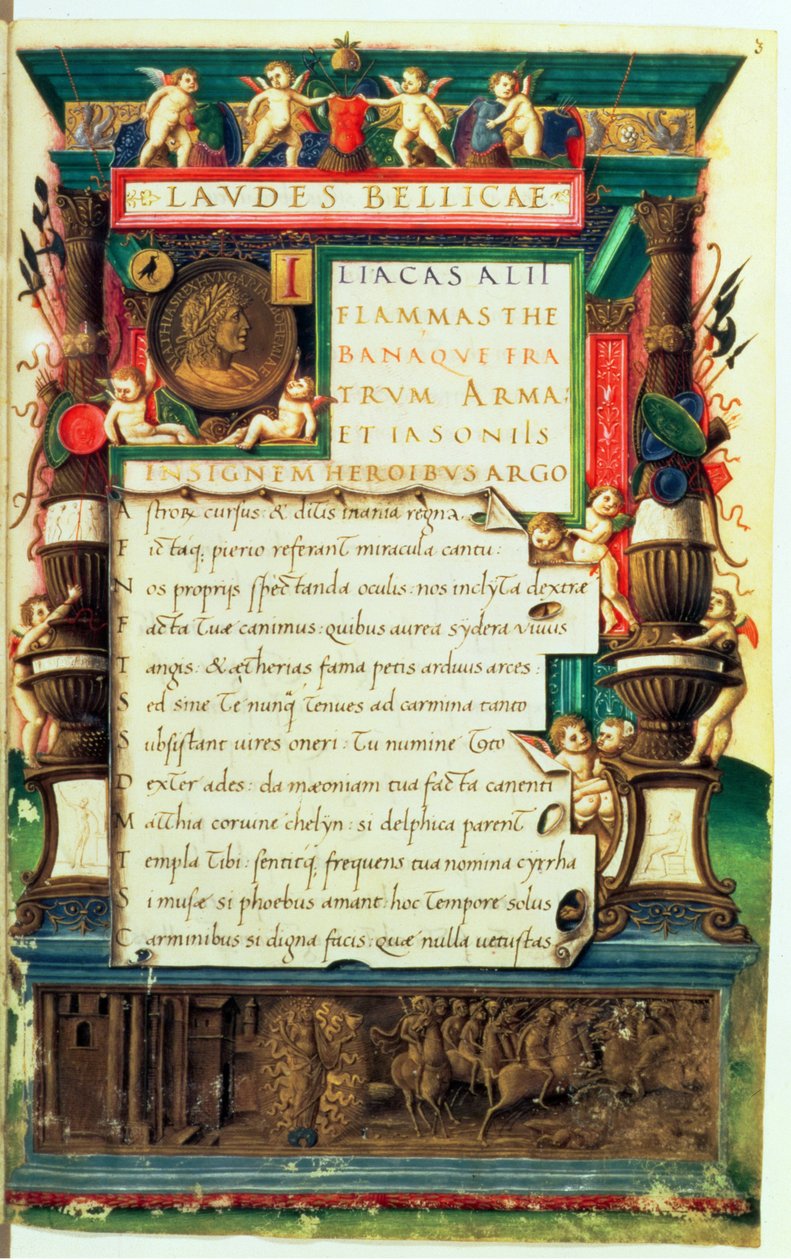 3
LAVDES BELLICAE
MATHIAS REX HVNGARIAE BOHEMIAE
ILIACAS ALII
FLAMMAS THE
BANAQVE FRA
TRVM ARMA:
ET IASONIIS
INSIGNEM HEROIBVS ARGO
Astroꝝ cursus: & ditis inania regna,
Fictaq; pierio referant miracula cantu:
Nos proprijs spectanda oculis: nos inclÿta dextræ
Facta tuæ canimus: quibus aurea sÿdera vivus
Tangis: & ætherias fama petis arduus arces:
Sed sine te nunq̃ tenues ad carmina tanto
Subsistant uires oneri: Tu numine toto
Dexter ades: da mæoniam tua facta canenti
Matthia coruine chelÿn: si delphica parent
Templa tibi: sentitq; frequens tua nomina cÿrrha
Si musæ si phoebus amant: hoc tempore solus
Carminibus si digna facis: quæ nulla vetustas